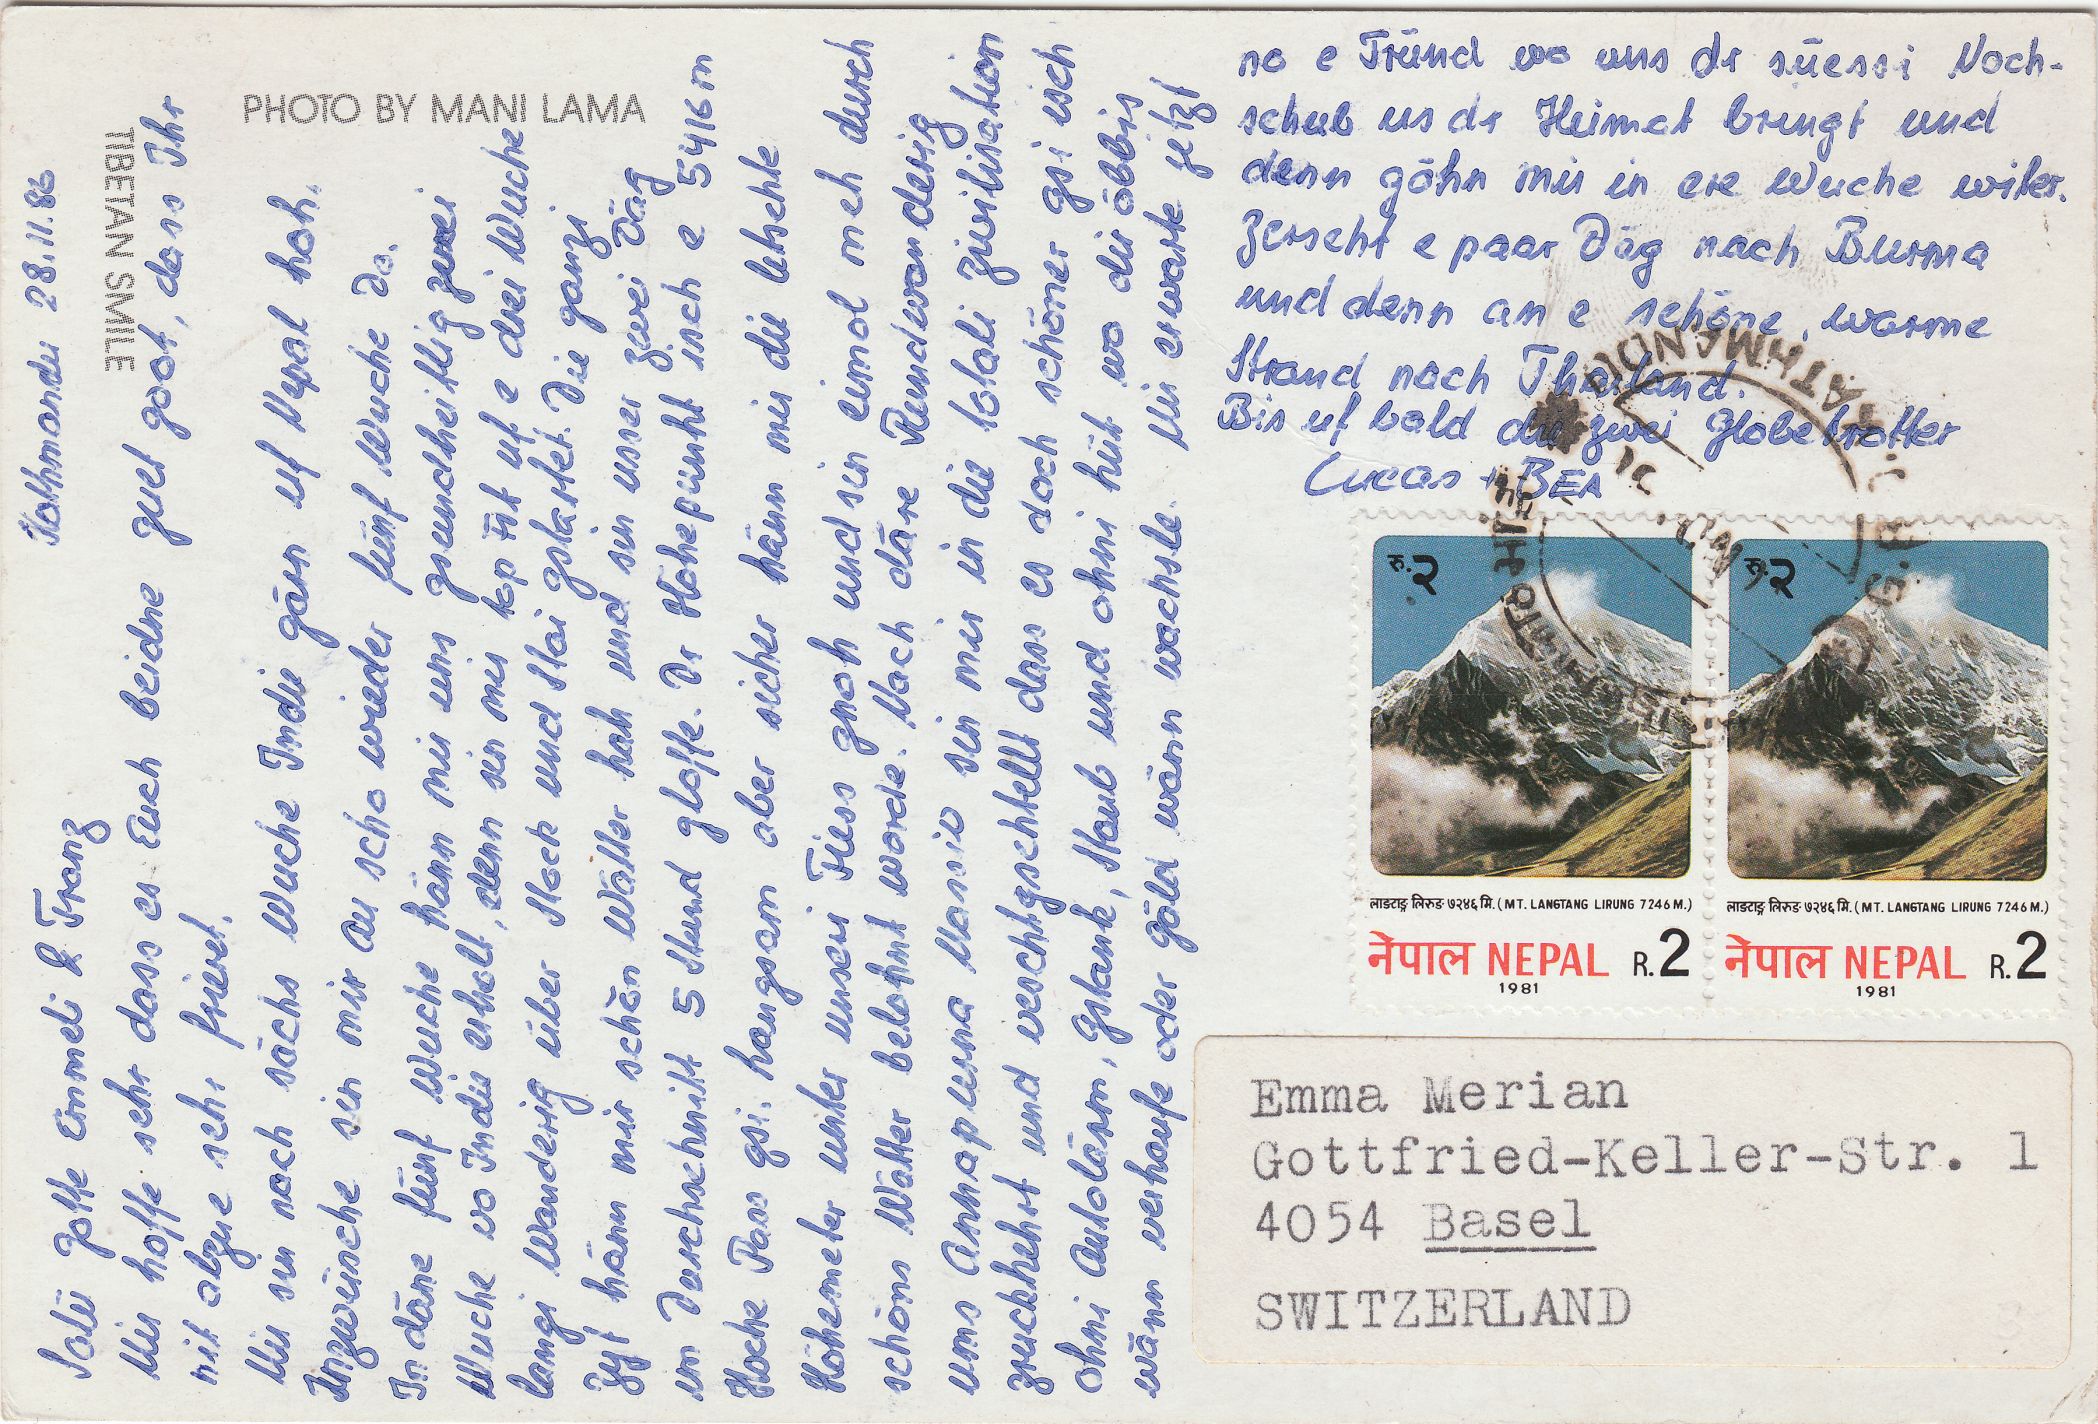 PHOTO BY MANI LAMA
TIBETAN SMILE
Kathmandu 28.11.86
Salü Gotte Emmeli & Franz
Mir hoffe sehr dass es Euch beidne guet goot, dass Ihr
nit alzue sehr frieret.
Mir sin nach sächs Wuche Indie gärn uf Nepal koh.
Inzwüsche sin mir au scho wieder fünf Wuche do.
In däne fünf Wuche hänn mir uns gsundheitlig zwei
Wuche vo Indie erholt, denn sin mir top fit uf e drei Wuche
langi Wanderig über Stock und Stai gstartet. Die ganzi
Zyt hänn mir schön Wätter kah und sin unser zwei Däg
im Durchschnitt 5 Stund gloffe. Dr Höhepunkt isch e 5416 m
Hoche Pass gsi. Langsam aber sicher hänn mir die letschte
Höhemeter unter unseri Füess gnoh und sin eimol meh durch
schöns Wätter belohnt worde. Nach däre Rundwanderig
ums Annapurna Massiv sin mir in die totali Zivilisation
zruckkehrt und veschtgschtellt dass es doch schöner gsi isch
ohni Autolärm, Gstank, Staub und ohni Lüt wo dir öbbis
wänn verkaufe oder Gäld wänn wächsle. Mir erwarte jetzt
no e Fründ wo uns dr süessi Noch-
schub us dr Heimat bringt und
denn göhn mir in ere Wuche witer.
Zerscht e paar Däg nach Burma
und denn an e schöne, warme
Strand nach Thailand.
Bis uf bald die zwei Globetrotter
Lucas + BEA
KATHMANDU
रु.२ रु.२
लाङटाङ्ग लिरुङ ७२४६ मि. (MT. LANGTANG LIRUNG 7246 M.) लाङटाङ्ग लिरुङ ७२४६ मि. (MT. LANGTANG LIRUNG 7246 M.)
नेपाल NEPAL R.2 नेपाल NEPAL R.2
1981 1981
Emma Merian
Gottfried-Keller-Str. 1
4054 Basel
SWITZERLAND